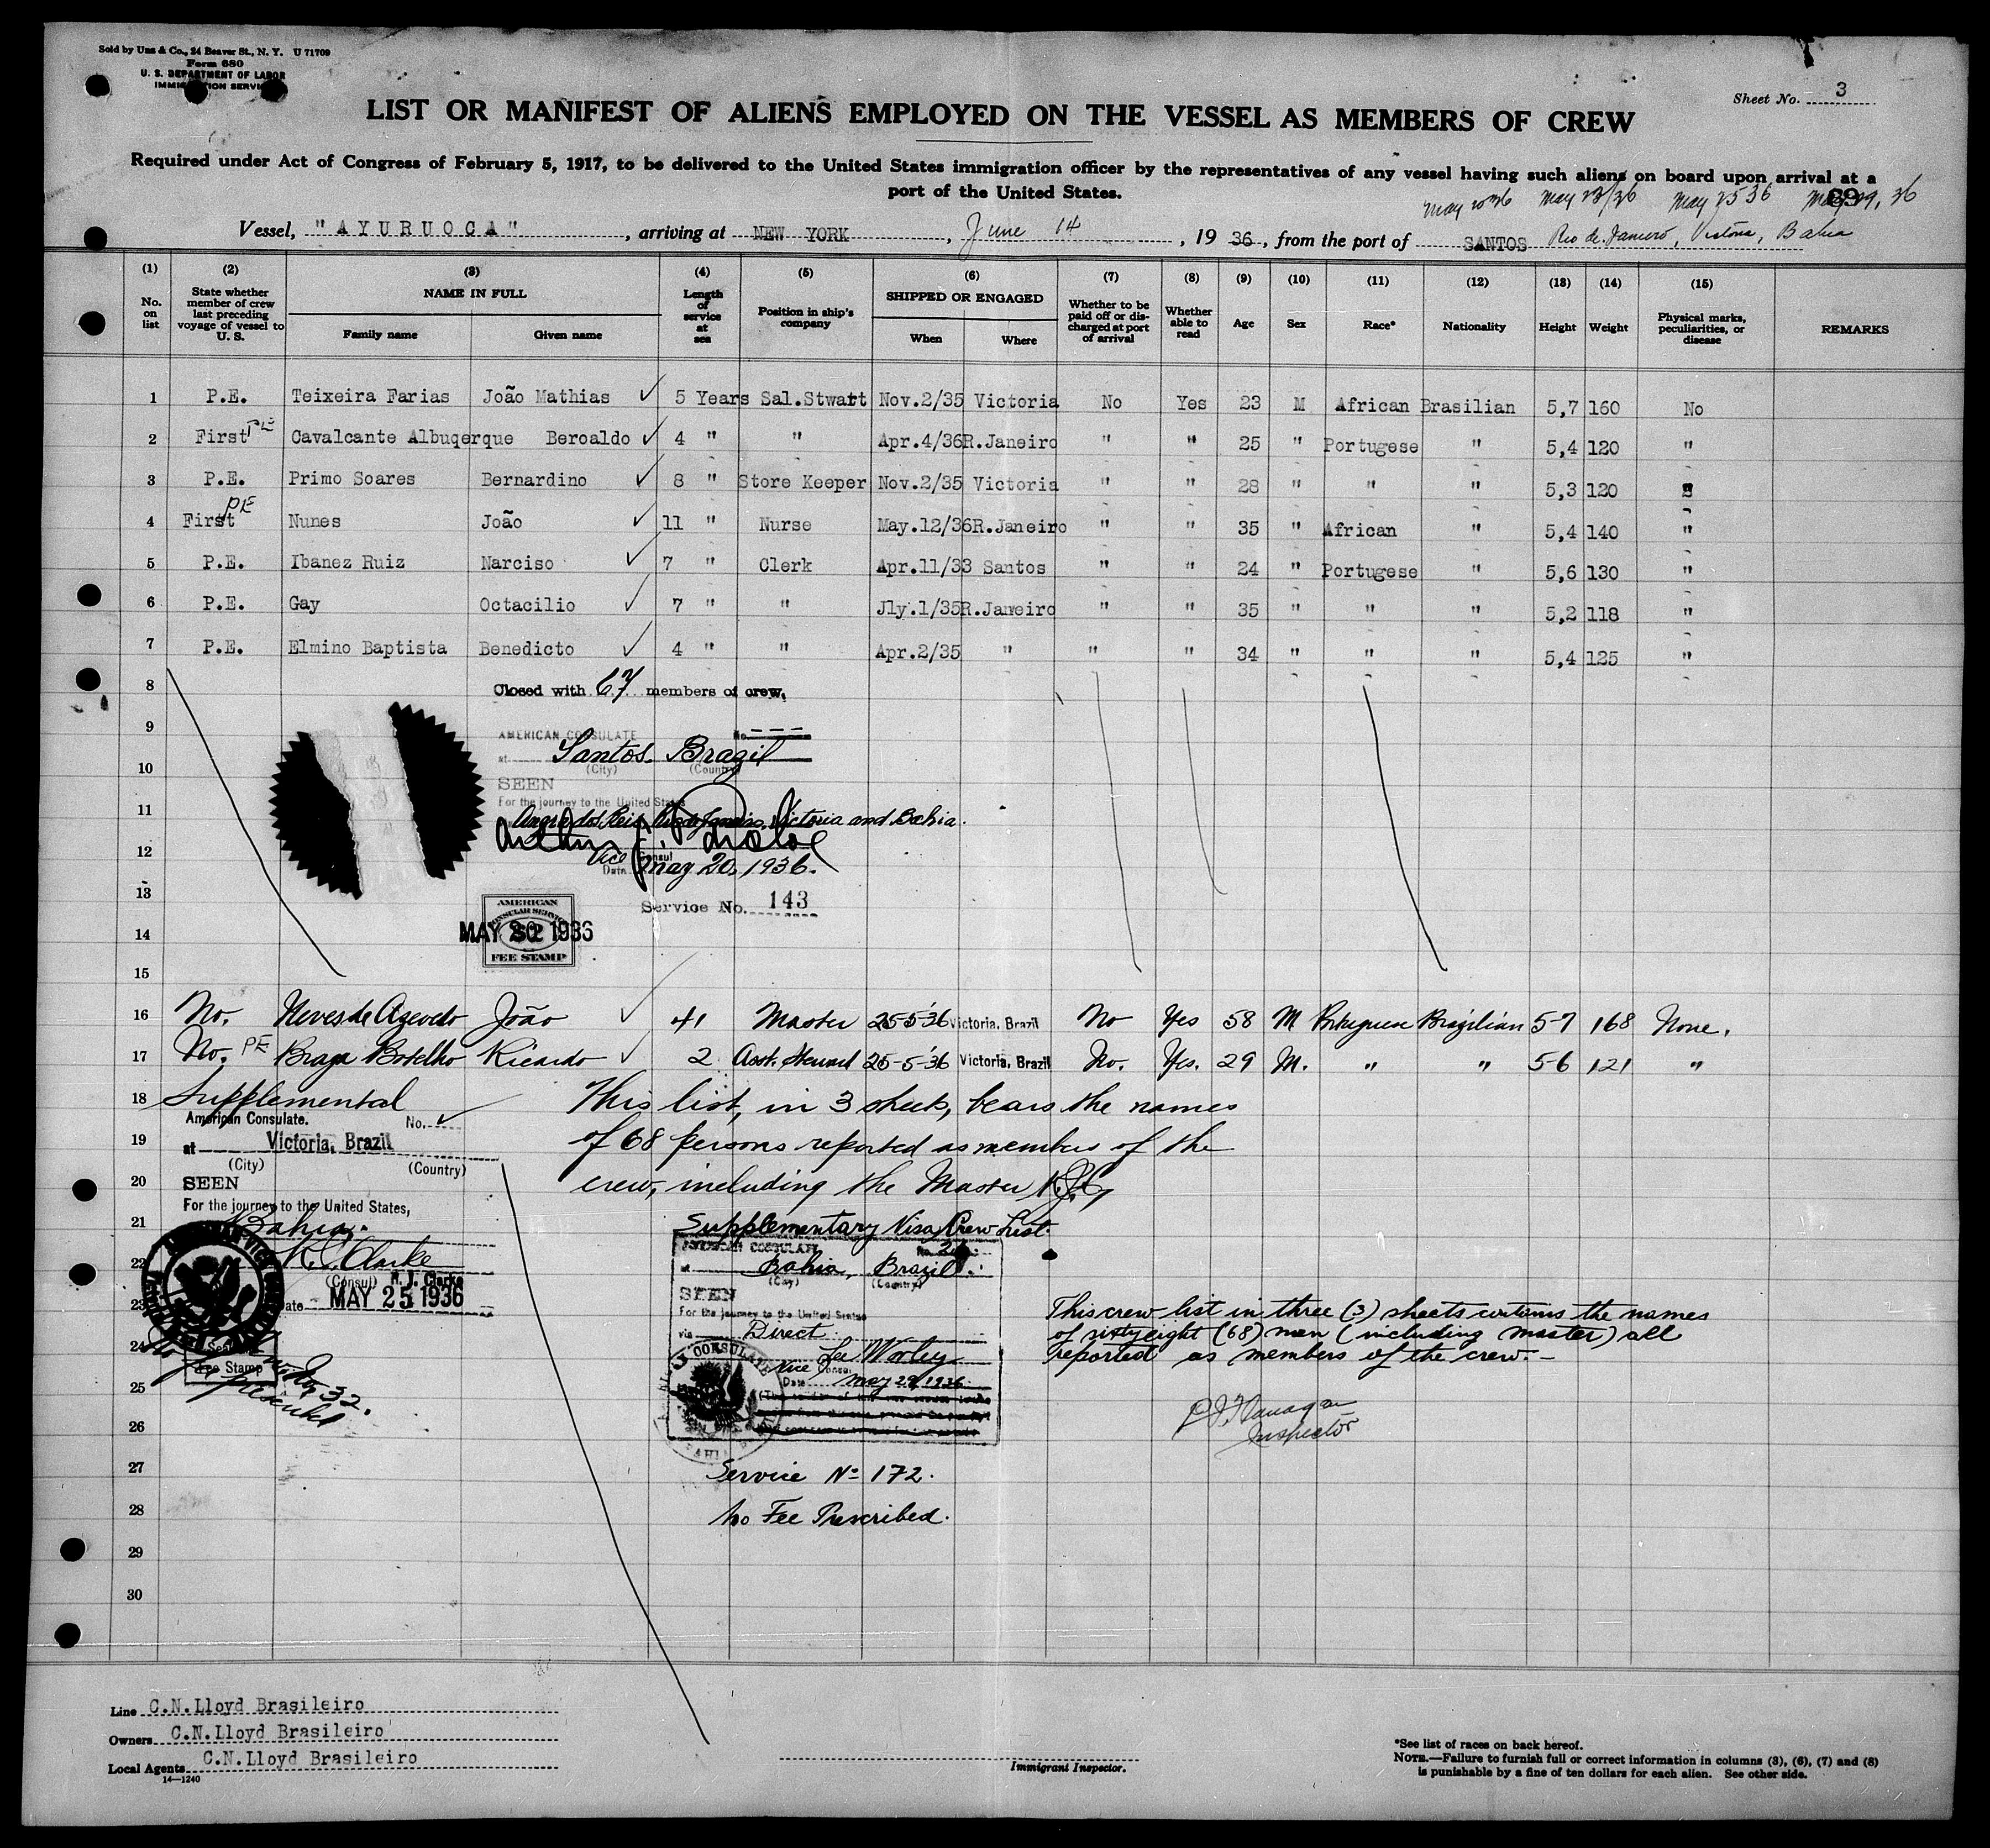 Sold by Unz & Co., 24 Beaver St., N. Y. U 71709
Form 680
U. S. DEPARTMENT OF LABOR
IMMIGRATION SERVICE
Sheet No. 3
LIST OR MANIFEST OF ALIENS EMPLOYED ON THE VESSEL AS MEMBERS OF CREW
Required under Act of Congress of February 5, 1917, to be delivered to the United States immigration officer by the representatives of any vessel having such aliens on board upon arrival at a
port of the United States.
May 20 36 May 23/36 May 25 36 May 29, 36
Vessel, "AYURUOCA", arriving at NEW YORK, June 14, 1936, from the port of SANTOS Rio de Janeiro, Victoria, Bahia
(1) (2) (3) (4) (5) (6) (7) (8) (9) (10) (11) (12) (13) (14) (15)
No. on list
State whether member of crew last preceding voyage of vessel to U. S.
NAME IN FULL
Family name
Given name
Length of service at sea
Position in ship's company
SHIPPED OR ENGAGED
When
Where
Whether to be paid off or discharged at port of arrival
Whether able to read
Age
Sex
Race*
Nationality
Height
Weight
Physical marks, peculiarities, or disease
REMARKS
1 P.E. Teixeira Farias João Mathias ✓ 5 Years Sal.Stwart Nov.2/35 Victoria No Yes 23 M African Brasilian 5,7 160 No
2 First PE Cavalcante Albuqerque Beroaldo ✓ 4 " " Apr.4/36 R.Janeiro " " 25 " Portugese " 5,4 120 "
3 P.E. Primo Soares Bernardino ✓ 8 " Store Keeper Nov.2/35 Victoria " " 28 " " " 5,3 120 "
4 First PE Nunes João ✓ 11 " Nurse May.12/36 R.Janeiro " " 35 " African " 5,4 140 "
5 P.E. Ibanez Ruiz Narciso ✓ 7 " Clerk Apr.11/33 Santos " " 24 " Portugese " 5,6 130 "
6 P.E. Gay Octacilio ✓ 7 " " Jly.1/35 R.Janeiro " " 35 " " " 5,2 118 "
7 P.E. Elmino Baptista Benedicto ✓ 4 " " Apr.2/35 " " " 34 " " " 5,4 125 "
8 Closed with 67 members of crew.
9 AMERICAN CONSULATE No. ---
at Santos. Brazil
10 (City) (Country)
SEEN
For the journey to the United States
11 Angra dos Reis, Rio de Janeiro, Victoria and Bahia.
12 Vice Consul
Date May 20, 1936.
13 Service No. 143
AMERICAN CONSULAR SERVICE
14 MAY 20 1936
FEE STAMP
15
16 No. Neves de Azevedo João ✓ 41 Master 25-5-36 Victoria, Brazil No Yes 58 M Portuguese Brazilian 5-7 168 None.
17 No. PE Braga Botelho Ricardo ✓ 2 Asst. Steward 25-5-36 Victoria, Brazil No. Yes. 29 M. " " 5-6 121 "
18 Supplemental This list, in 3 sheets, bears the names
American Consulate. No. ✓
19 at Victoria, Brazil of 68 persons reported as members of the
(City) (Country)
20 SEEN crew, including the Master
For the journey to the United States,
21 Bahia.
Supplementary Visa, Crew List.
22 R. J. Clarke
(Consul) R. J. Clarke
23 Date MAY 25 1936
AMERICAN CONSULATE
at Bahia, Brazil.
(City) (Country)
SEEN
For the journey to the United States
via Direct
24 Fee Stamp
Lee Worley
Vice Consul
25 Date May 29, 1936
This crew list in three (3) sheets contains the names
of sixty eight (68) men (including master) all
reported as members of the crew.—
26 Inspector
27 Service No 172.
28 No Fee Prescribed.
29
30
Line C.N.Lloyd Brasileiro
Owners C.N.Lloyd Brasileiro
Local Agents C.N.Lloyd Brasileiro
14—1240
Immigrant Inspector.
*See list of races on back hereof.
NOTE.—Failure to furnish full or correct information in columns (3), (6), (7) and (8)
is punishable by a fine of ten dollars for each alien. See other side.